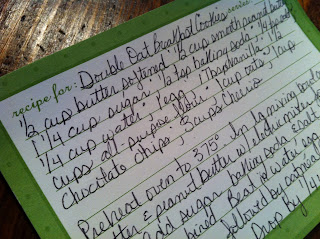 recipe for: Double Oat Breakfast Cookies serves
1/2 cup butter softened; 1/2 cup smooth peanut butter
1 1/4 cup sugar; 1/2 tsp baking soda;
1/4 cup water; 1 egg; 1 tbsp vanilla; 1 1/2
cups all-purpose flour; 1 cup oats; 1 cup
chocolate chips; 3 cups cheerios
Preheat oven to 375°. In lg mixing bowl
& peanut butter w/ electric mixer
Add sugar, baking soda & salt
Beat in water, egg
followed by oatmeal
Drop by 1/4